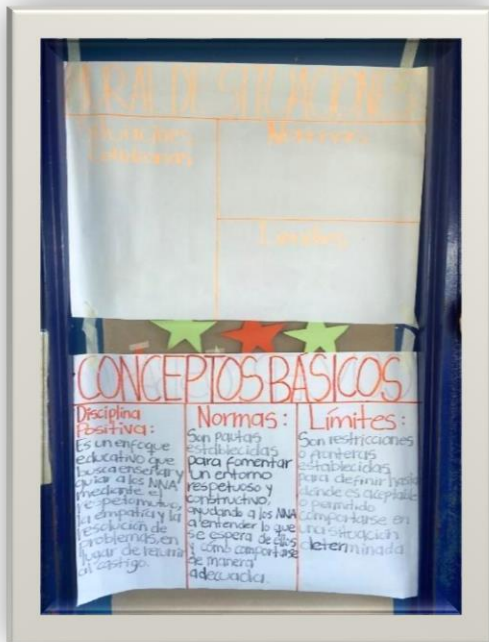 MURAL DE SITUACIONES
Situaciones
Cotidianas
Normas
Límites
CONCEPTOS BÁSICOS
Disciplina
Positiva:
Es un enfoque
educativo que
busca enseñar y
guiar a los NNA
mediante el
respeto mutuo,
la empatía y la
resolución de
problemas, en
lugar de recurrir
al castigo.
Normas:
Son pautas
establecidas
para fomentar
un entorno
respetuoso y
constructivo,
ayudando a los NNA
a entender lo que
se espera de ellos
y cómo comportarse
de manera
adecuada.
Límites:
Son restricciones
o fronteras
establecidas
para definir hasta
dónde es aceptable
o permitido
comportarse en
una situación
determinada